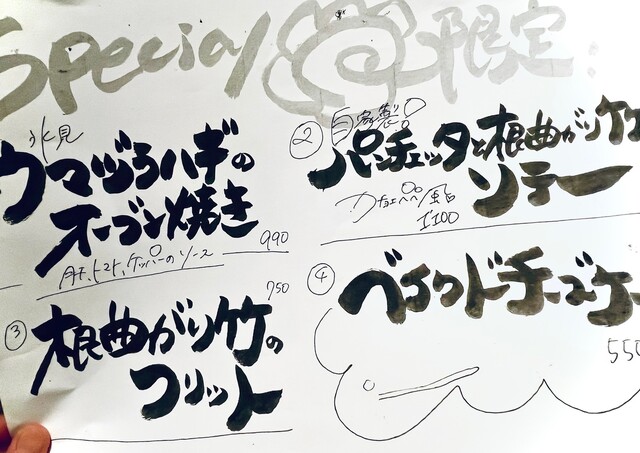 Special 限定
氷見
ウマヅラハギの
オーブン焼き
990
肝、トマト、ケッパーのソース
② 自家製
パンチェッタと根曲がり竹
ソテー
カチョエペペ風
¥1100
③ 根曲がり竹の
フリット
750
④ ベイクドチーズケー
550